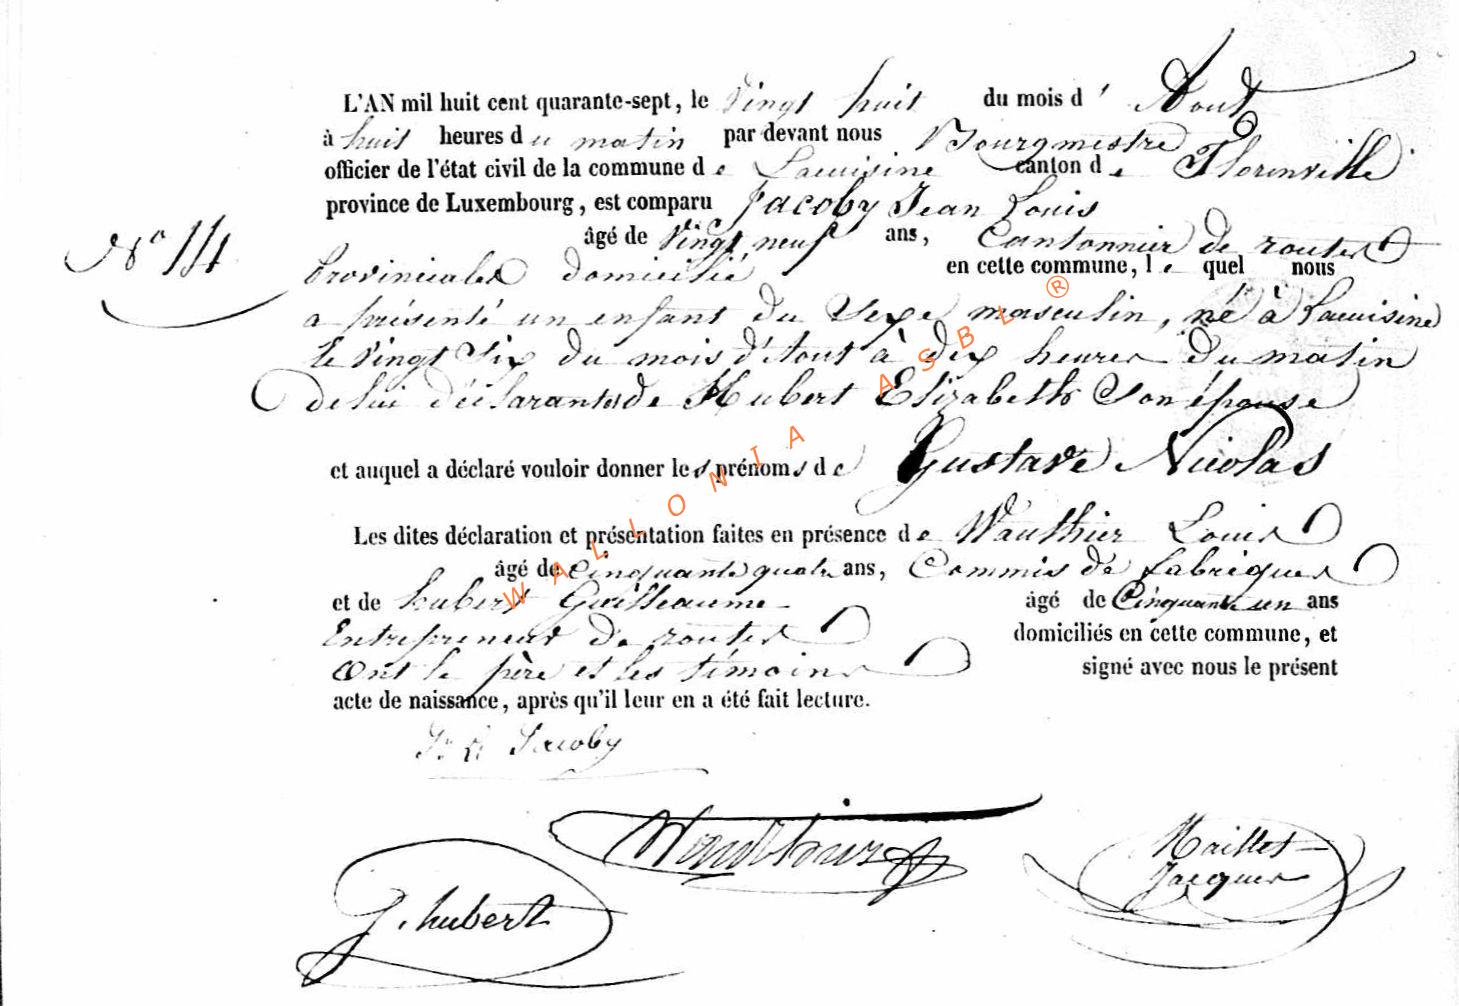 L'AN mil huit cent quarante-sept, le Vingt huit du mois d' Aout
à huit heures du matin par devant nous Bourgmestre
officier de l'état civil de la commune de Lacuisine canton de Florenville
province de Luxembourg, est comparu Jacoby Jean Louis
âgé de Vingt neuf ans, Cantonnier de routes
N° 14
provinciales domicilié en cette commune, le quel nous
a présenté un enfant du Sexe masculin, né à Lacuisine
le Vingt Six du mois d'Aout à dix heures du matin
de lui déclarant et de Hubert Elizabeth Son épouse
et auquel a déclaré vouloir donner les prénoms de Gustave Nicolas
Les dites déclaration et présentation faites en présence de Wauthier Louis
âgé de Cinquante quatre ans, Commis de fabriques
et de hubert Guilleaume âgé de Cinquante un ans
Entrepreneur de routes domiciliés en cette commune, et
Ont le père et les témoins signé avec nous le présent
acte de naissance, après qu'il leur en a été fait lecture.
Jn Ls Jacoby
Wauthier
Maillet
Jacques
G. hubert
WALLONIA ASBL ®